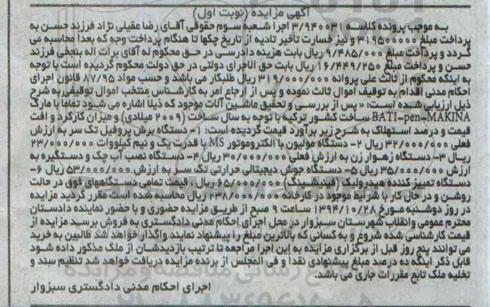 آگهی مزایده (نوبت اول)
به موجب پرونده کلاسه ۳/۹۴۰۰۳ اجرا شعبه سوم حقوقی آقای رضا عقیلی نژاد فرزند حسن به
پرداخت مبلغ ۳۱۹۵۰۰۰۰۰ و نیز خسارت تاخیر تادیه از تاریخ چکها تا هنگام پرداخت وجه که بعدا محاسبه می
گردد و پرداخت مبلغ ۹/۴۸۵/۰۰۰ ریال بابت هزینه دادرسی در حق محکوم له آقای برات اله بنجخی فرزند
حسن و پرداخت مبلغ ۱۶/۴۴۹/۲۵۰ ریال بابت حق الاجرای دولتی در حق دولت محکوم گردیده است با توجه
به اینکه محکوم از ثالث علی پروانه ۳۱۹/۰۰۰/۰۰۰ ریال طلبکار می باشد و حسب مواد ۸۷/۹۵ قانون اجرای
احکام مدنی اقدام به توقیف اموال ثالث نموده و پس از ارجاع امر به کارشناس منتخب اموال توقیفی به شرح
ذیل ارزیابی شده است: « پس از بررسی و تحقیق ماشین آلات موجود که ذیلا اشاره می شود تماما با مارک
BATI-pen-MAKINA ساخت کشور ترکیه با توجه به سال ساخت (۲۰۰۹ میلادی) و میزان کارکرد و افت
قیمت و درصد استهلاک به شرح زیر برآورد قیمت گردیده است: ۱- دستگاه برش پروفیل تک سر به ارزش
فعلی ۳۲/۰۰۰/۰۰۰ ریال ۲- دستگاه مولیون با الکتروموتور MS با قدرت یک و نیم کیلووات ۲۳/۰۰۰/۰۰۰
ریال ۳- دستگاه زهوار زن به ارزش فعلی ۳۰/۰۰۰/۰۰۰ ریال ۴- دستگاه نصب آب چک و دستگیره به
ارزش ۳۵/۰۰۰/۰۰۰ ریال ۵- دستگاه جوش دیجیتالی حرارتی تک سر به ارزش ۵۳/۰۰۰/۰۰۰ ریال ۶-
دستگاه تمیز کننده هیدرولیک (فینیشینگ) ۶۵/۰۰۰/۰۰۰ ریال. قیمت تمامی دستگاههای فوق در حالت
روشن و در حال کار با شرایط موجود در کارخانه ۲۳۸/۰۰۰/۰۰۰ ریال محاسبه شده است مقرر گردید مزایده
در روز دوشنبه مورخ ۱۳۹۴/۱۰/۲۸ ساعت ۹ صبح از طریق مزایده حضوری و با حضور نماینده دادستان
محترم عمومی وانقلاب شهرستان سبزوار در محل اجرای احکام مدنی دادگستری به فروش برسد مزایده از
قیمت کارشناسی شده شروع و به کسانی که بالاترین قیمت را پیشنهاد نمایند واگذار خواهد شد طالبین به خرید
می توانند پنج روز قبل از برگزاری مزایده به این اجرا مراجعه تا ترتیب بازدیدشان از ملک مذکور داده شود
قابل ذکر اینکه ده درصد مبلغ پیشنهادی نقدا و فی المجلس از برنده مزایده دریافت خواهد شد تنظیم سند و
تخلیه ملک تابع مقررات جاری می باشد.
اجرای احکام مدنی دادگستری سبزوار